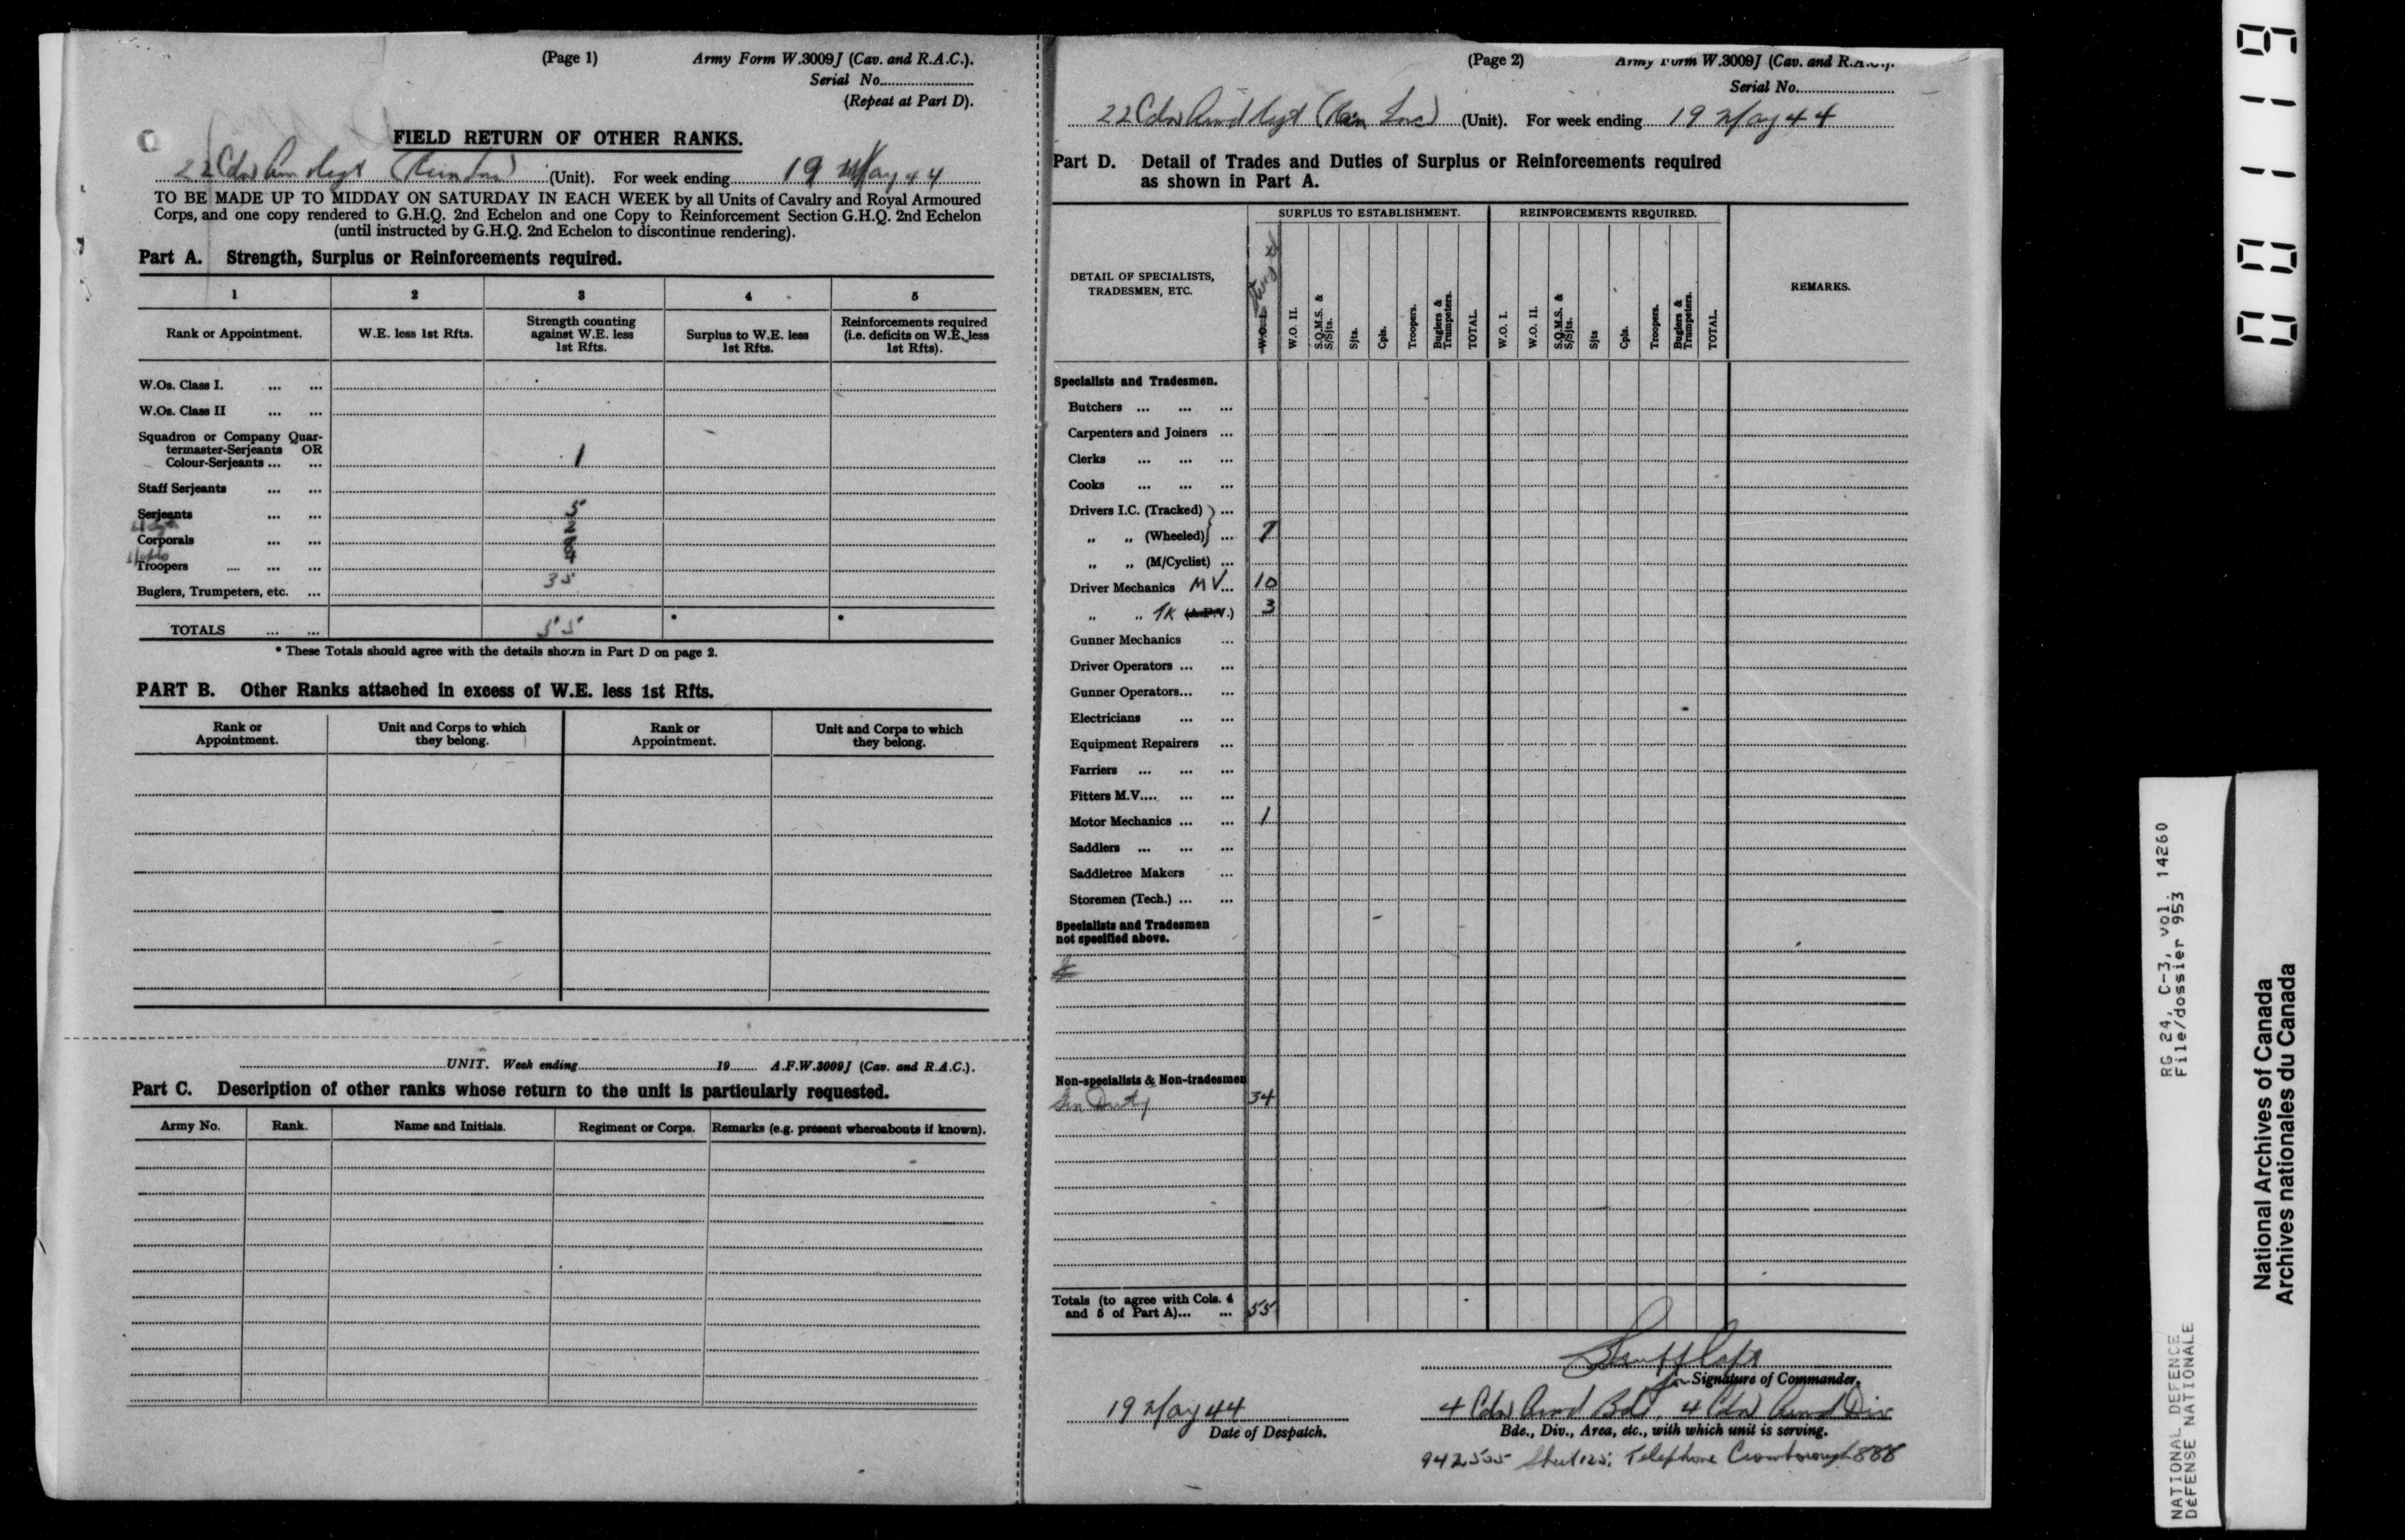 (Page 1) Army Form W.3009J (Cav. and R.A.C.).
Serial No.
(Repeat at Part D).
FIELD RETURN OF OTHER RANKS.
22 Cdn Arm Regt (Unit). For week ending 19 May 44
TO BE MADE UP TO MIDDAY ON SATURDAY IN EACH WEEK by all Units of Cavalry and Royal Armoured
Corps, and one copy rendered to G.H.Q. 2nd Echelon and one Copy to Reinforcement Section G.H.Q. 2nd Echelon
(until instructed by G.H.Q. 2nd Echelon to discontinue rendering).
Part A. Strength, Surplus or Reinforcements required.
1 2 3 4 5
Rank or Appointment. W.E. less 1st Rfts. Strength counting against W.E. less 1st Rfts. Surplus to W.E. less 1st Rfts. Reinforcements required (i.e. deficits on W.E. less 1st Rfts).
W.Os. Class I. ... ...
W.Os. Class II ... ...
Squadron or Company Quar-
termaster-Serjeants OR
Colour-Serjeants ... ... 1
Staff Serjeants ... ...
Serjeants ... ... 5
2
Corporals ... ...
4
Troopers .... ... ...
35
Buglers, Trumpeters, etc. ...
TOTALS ... ... 55 * *
* These Totals should agree with the details shown in Part D on page 2.
PART B. Other Ranks attached in excess of W.E. less 1st Rfts.
Rank or Appointment. Unit and Corps to which they belong. Rank or Appointment. Unit and Corps to which they belong.
UNIT. Week ending 19 A.F.W.3009J (Cav. and R.A.C.).
Part C. Description of other ranks whose return to the unit is particularly requested.
Army No. Rank. Name and Initials. Regiment or Corps. Remarks (e.g. present whereabouts if known).
(Page 2) Army Form W.3009J (Cav. and R.A.C.).
Serial No.
22 Cdn Armd Regt (Unit). For week ending 19 May 44
Part D. Detail of Trades and Duties of Surplus or Reinforcements required
as shown in Part A.
SURPLUS TO ESTABLISHMENT. REINFORCEMENTS REQUIRED.
DETAIL OF SPECIALISTS, TRADESMEN, ETC. W.O. I. W.O. II. S.Q.M.S. & S/Sjts. Sjts. Cpls. Troopers. Buglers & Trumpeters. TOTAL. W.O. I. W.O. II. S.Q.M.S. & S/Sjts. Sjts Cpls. Troopers. Buglers & Trumpeters. TOTAL. REMARKS.
Specialists and Tradesmen.
Butchers ... ... ...
Carpenters and Joiners ...
Clerks ... ... ...
Cooks ... ... ...
Drivers I.C. (Tracked) ...
„ „ (Wheeled) ... 7
„ „ (M/Cyclist) ...
Driver Mechanics MV... 10
„ „ TK (A.F.V.) 3
Gunner Mechanics ...
Driver Operators ... ...
Gunner Operators... ...
Electricians ... ...
Equipment Repairers ...
Farriers ... ... ...
Fitters M.V.... ... ...
Motor Mechanics ... ... 1
Saddlers ... ... ...
Saddletree Makers ...
Storemen (Tech.) ... ...
Specialists and Tradesmen
not specified above.
Non-specialists & Non-tradesmen
Gen Duty 34
Totals (to agree with Cols. 4
and 5 of Part A)... ... 55
Capt
for Signature of Commander.
19 May 44 4 Cdn Armd Bde, 4 Cdn Armd Div
Date of Despatch. Bde., Div., Area, etc., with which unit is serving.
942555 Sheet 125. Telephone Crowborough 888
000119
RG 24, C-3, vol. 14260
File/dossier 953
NATIONAL DEFENCE
DÉFENSE NATIONALE
National Archives of Canada
Archives nationales du Canada